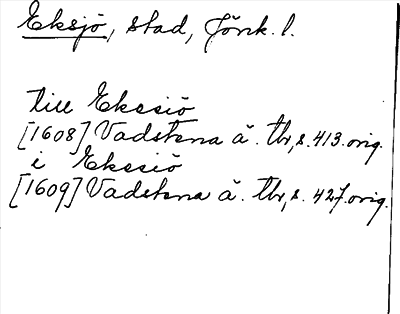 Eksjö, stad, Jönk. l.
till Ekesiö
[1608] Vadstena ä. tbr, s. 413. orig.
i Ekesiö
[1609] Vadstena ä. tbr, s. 427. orig.